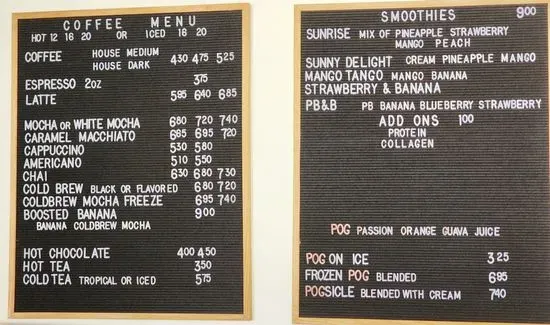 COFFEE MENU
HOT 12 16 20 OR ICED 16 20
COFFEE HOUSE MEDIUM
HOUSE DARK 430 475 525
ESPRESSO 2oz 375
LATTE 595 640 685
MOCHA OR WHITE MOCHA 680 720 740
CARAMEL MACCHIATO 685 695 720
CAPPUCCINO 530 580
AMERICANO 510 550
CHAI 630 680 730
COLD BREW BLACK OR FLAVORED 680 720
COLDBREW MOCHA FREEZE 695 740
BOOSTED BANANA 900
BANANA COLDBREW MOCHA
HOT CHOCOLATE 400 450
HOT TEA 350
COLD TEA TROPICAL OR ICED 575
SMOOTHIES 900
SUNRISE MIX OF PINEAPPLE STRAWBERRY
MANGO PEACH
SUNNY DELIGHT CREAM PINEAPPLE MANGO
MANGO TANGO MANGO BANANA
STRAWBERRY & BANANA
PB&B PB BANANA BLUEBERRY STRAWBERRY
ADD ONS 100
PROTEIN
COLLAGEN
POG PASSION ORANGE GUAVA JUICE
POG ON ICE 325
FROZEN POG BLENDED 695
POGSICLE BLENDED WITH CREAM 740